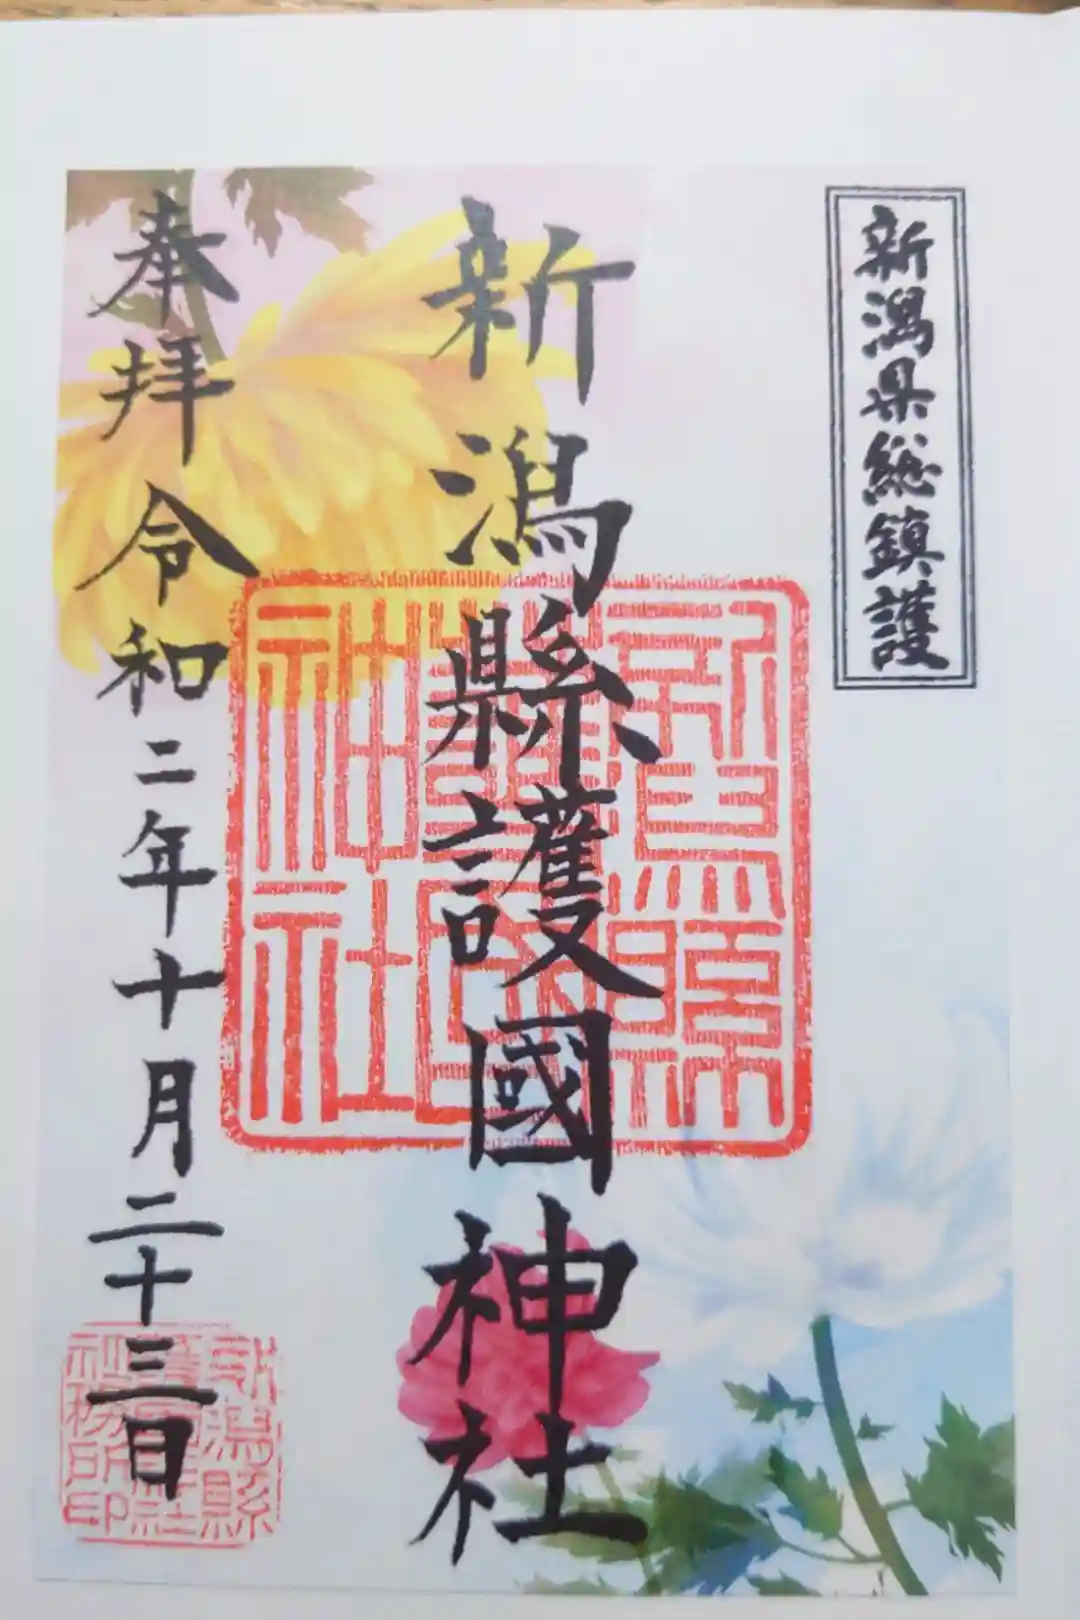 新潟県総鎮護
新潟縣護國神社
奉拝 令和二年十月二十三日
新潟縣
護國神社
新潟縣
護國神社
社務所印